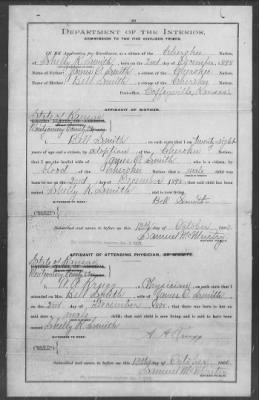 DEPARTMENT OF THE INTERIOR,
COMMISSION TO THE FIVE CIVILIZED TRIBES.
IN RE Application for Enrollment, as a citizen of the Cherokee Nation,
of Shelly R. Smith, born on the 2nd day of December, 1895
Name of Father: James C. Smith a citizen of the Cherokee Nation.
Name of Mother: Bell Smith a citizen of the Cherokee Nation.
Postoffice Coffeyville, Kansas
AFFIDAVIT OF MOTHER.
State of Kansas
Montgomery County
I, Bell Smith, on oath state that I am twenty eight
years of age and a citizen, by adoption of the Cherokee Nation
that I am the lawful wife of James C. Smith, who is a citizen, by
blood of the Cherokee Nation; that a male child
was born to me on 2nd day of December, 1895; that said child has been
named Shelly R. Smith, and is now living.
Bell Smith
Subscribed and sworn to before me this 12th day of October, 190
Samuel McMurtry
AFFIDAVIT OF ATTENDING PHYSICIAN, OR MIDWIFE.
State of Kansas
Montgomery County
I, a Physician, on oath state that I
attended on Mrs. Bell Smith, wife of James C. Smith
on the 2nd day of December, 1895; that there was born to her on
said date a male child; that said child is now living and is said to have
been named Shelly R. Smith
Subscribed and sworn to before me this 12th day of October, 190
Samuel McMurtry